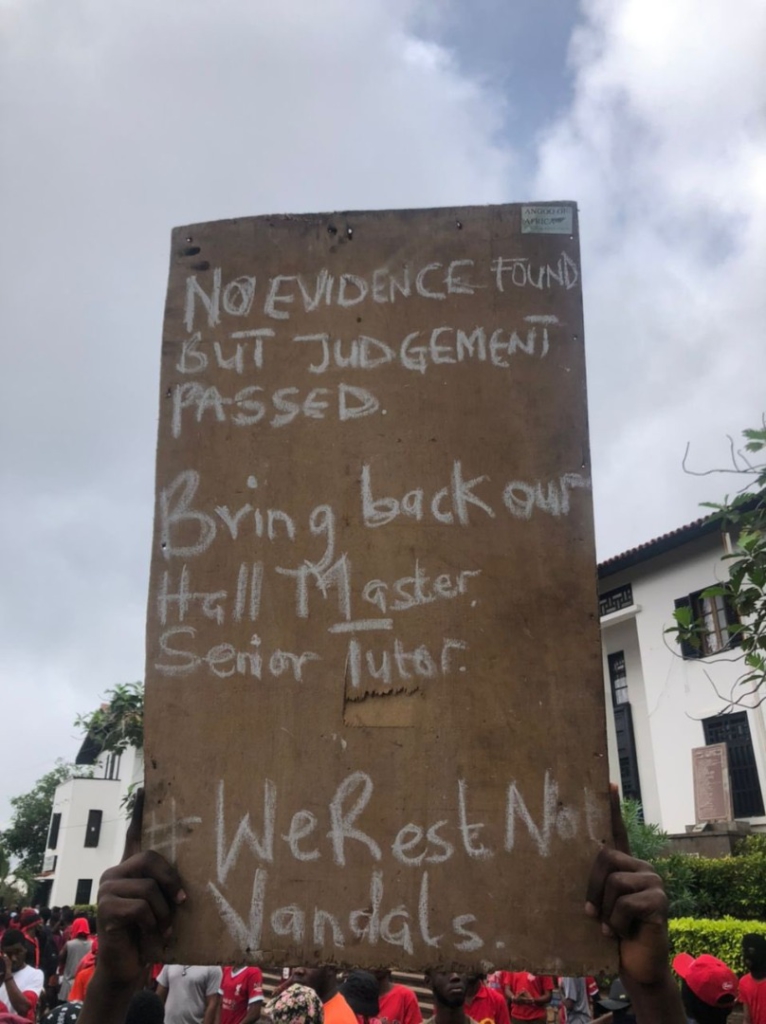 ANGLO OF
AFRICA
NO EVIDENCE FOUND
BUT JUDGEMENT
PASSED.
Bring back our
Hall Master.
Senior Tutor.
#WeRestNot
Vandals.